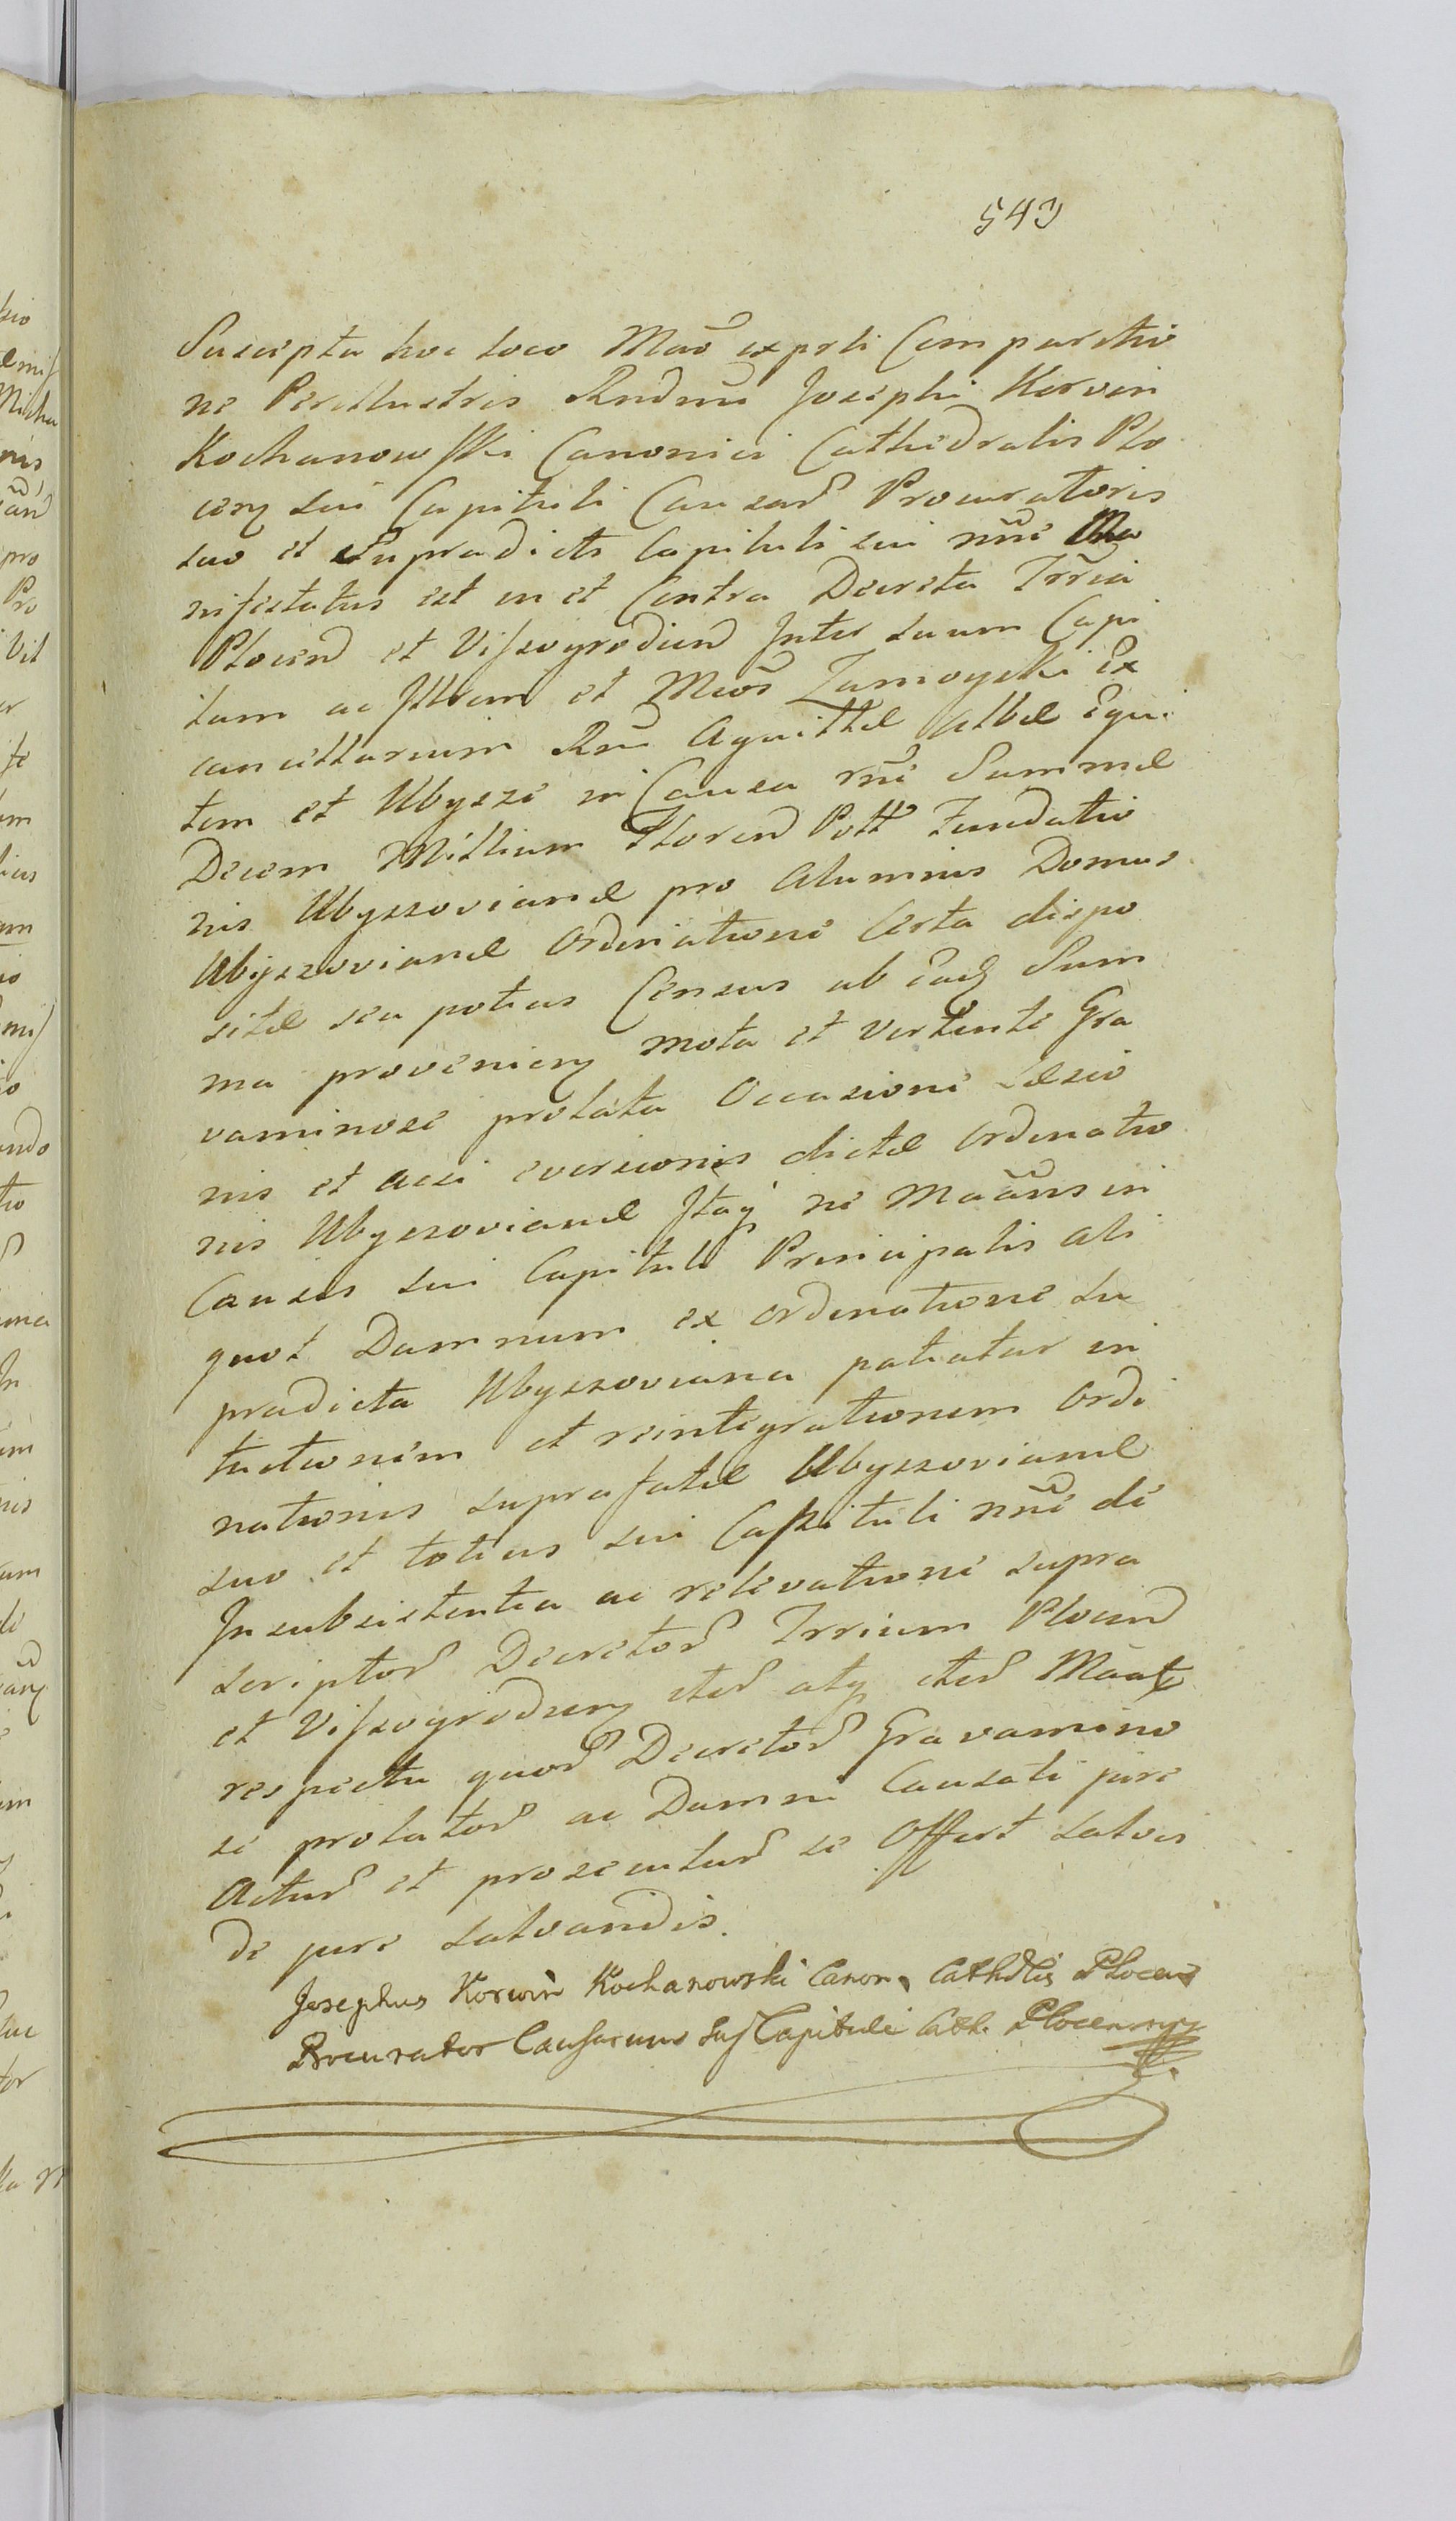 543
Suscepta hoc loco Mão exprti Comparitio
ne Perillustris Rndmi Josephi Korvin
Kochanowski Canonici Cathedralis Plo
cen Sui Capituli Causar Procuratoris
suo et Supradicti Capituli sui nñe Ma
nifestatus est in et Contra Decreta Trria
Plocen et Viszogrodien Inter suum Capi
tum ac Illrem et Mcos Zamoyski Ex
cancellarium Rni Aquillæ Albæ Equi
tem et Ubysze in Causa rñe Summæ
Decem Millium Floren Poll Fundatio
nis Ubyszovianæ pro Alumnis Domus
Ubyszovianæ Ordinatione Certa dispo
sitæ seu potius Census ab eadq Sum
ma provenien mota et vertente Gra
vaminose prolata Occasione Læsio
nis et acsi eversionis dictæ Ordinatio
nis Ubyszovianæ Itaq ne Maãns in
Causis sui Capituli Principalis ali
quot Damnum ex Ordinatione Su
pradicta Ubyszoviana patiatur in
tuitionem et reintegrationem Ordi
nationis suprafatæ Ubyszovianæ
suo et totius sui Capituli nñe de
Insubsistentia ac relevatione supra
scriptor Decretor Trrium Plocen
et Viszogrodien iter atq iter Maãt
respectu quor Decretor Gravamino
se prolator ac Damni Causati jure
Actur et prosecutur se Offert salvis
de jure salvandis.
Josephus Korwin Kochanowski Canon. Cathdlis Plocen
Procurator Causarum Suj Capituli Cath. Plocensis